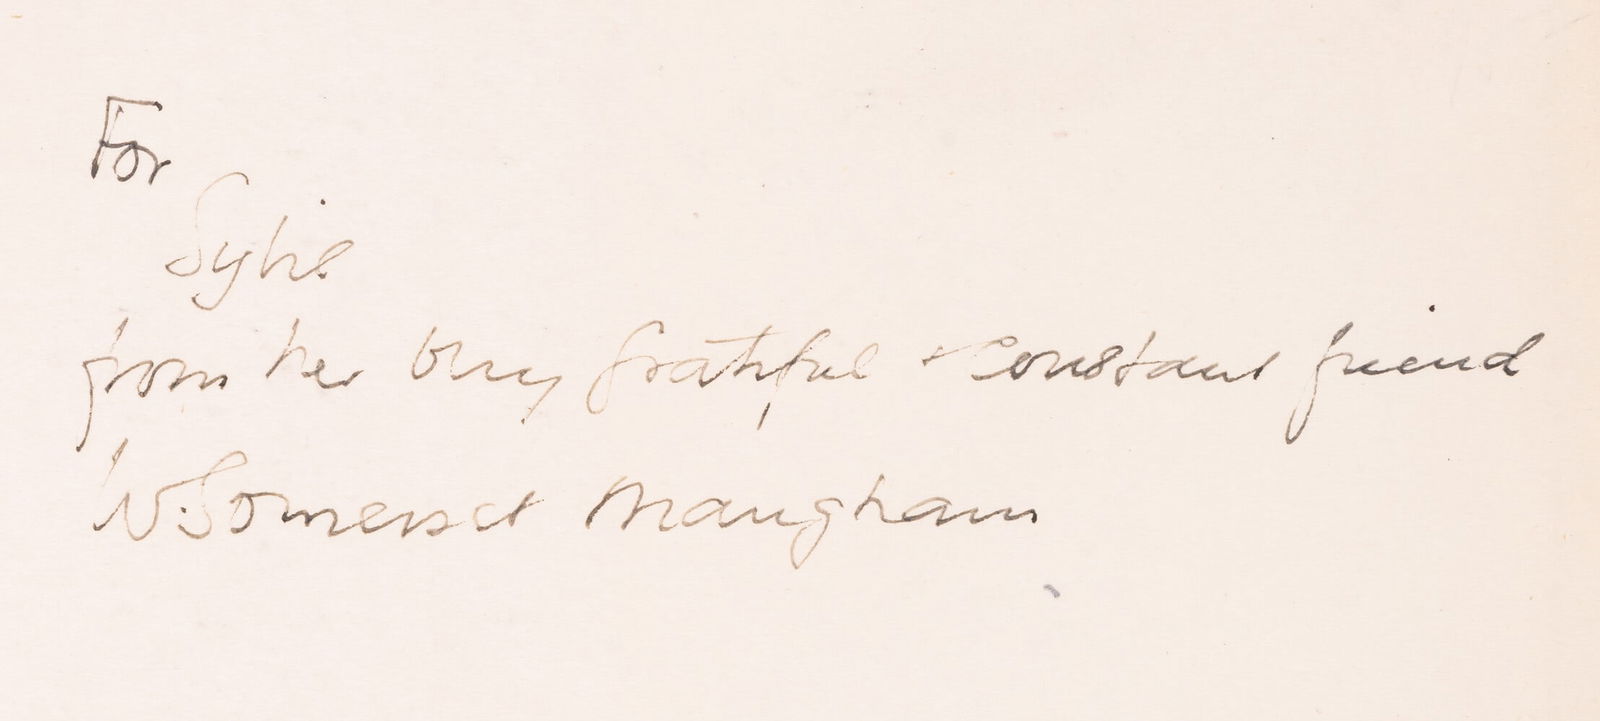 For
Sybil
from her very grateful + constant friend
W. Somerset Maugham